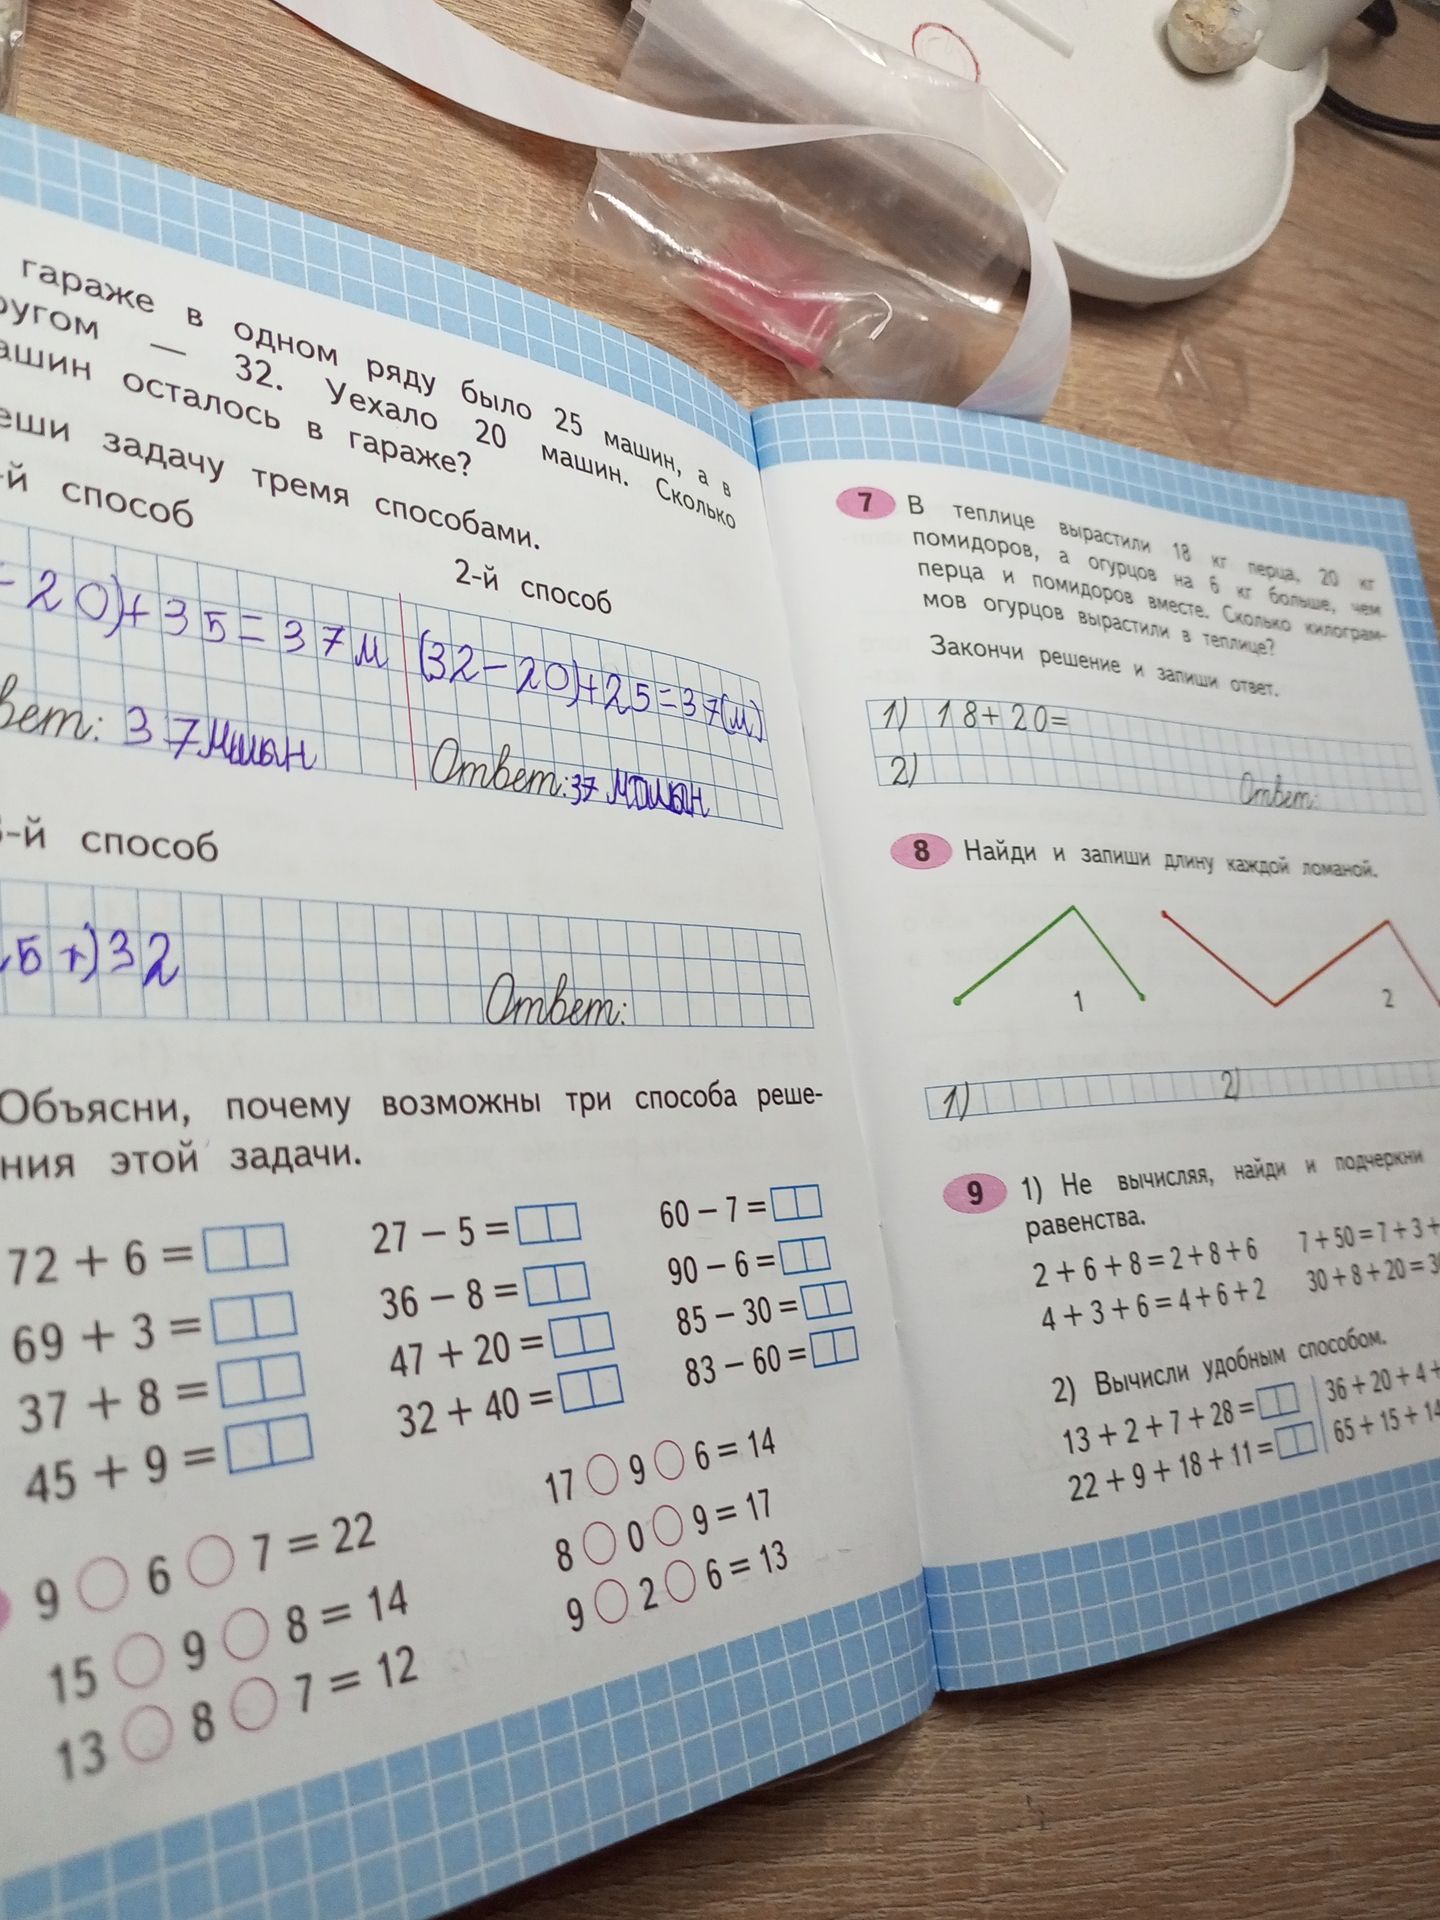 гараже в одном ряду было 25 машин, а в
ругом — 32. Уехало 20 машин. Сколько
ашин осталось в гараже?
еши задачу тремя способами.
-й способ
2-й способ
- 20)+35=37м
(32-20)+25=37(м)
вет: 37
Ответ: 37
3-й способ
5+)32
Ответ:
Объясни, почему возможны три способа реше-
ния этой задачи.
72 + 6 =
27 − 5 =
60 − 7 =
69 + 3 =
36 − 8 =
90 − 6 =
37 + 8 =
47 + 20 =
85 − 30 =
45 + 9 =
32 + 40 =
83 − 60 =
9 ○ 6 ○ 7 = 22
17 ○ 9 ○ 6 = 14
15 ○ 9 ○ 8 = 14
8 ○ 0 ○ 9 = 17
13 ○ 8 ○ 7 = 12
9 ○ 2 ○ 6 = 13
7 В теплице вырастили 18 кг перца, 20 кг
помидоров, а огурцов на 6 кг больше, чем
перца и помидоров вместе. Сколько килограм-
мов огурцов вырастили в теплице?
Закончи решение и запиши ответ.
1) 18+20=
2)
Ответ:
8 Найди и запиши длину каждой ломаной.
1
2
1)
2)
9 1) Не вычисляя, найди и подчеркни
равенства.
2 + 6 + 8 = 2 + 8 + 6
7 + 50 = 7 + 3 +
4 + 3 + 6 = 4 + 6 + 2
30 + 8 + 20 = 3
2) Вычисли удобным способом.
13 + 2 + 7 + 28 =
36 + 20 + 4 +
22 + 9 + 18 + 11 =
65 + 15 + 14